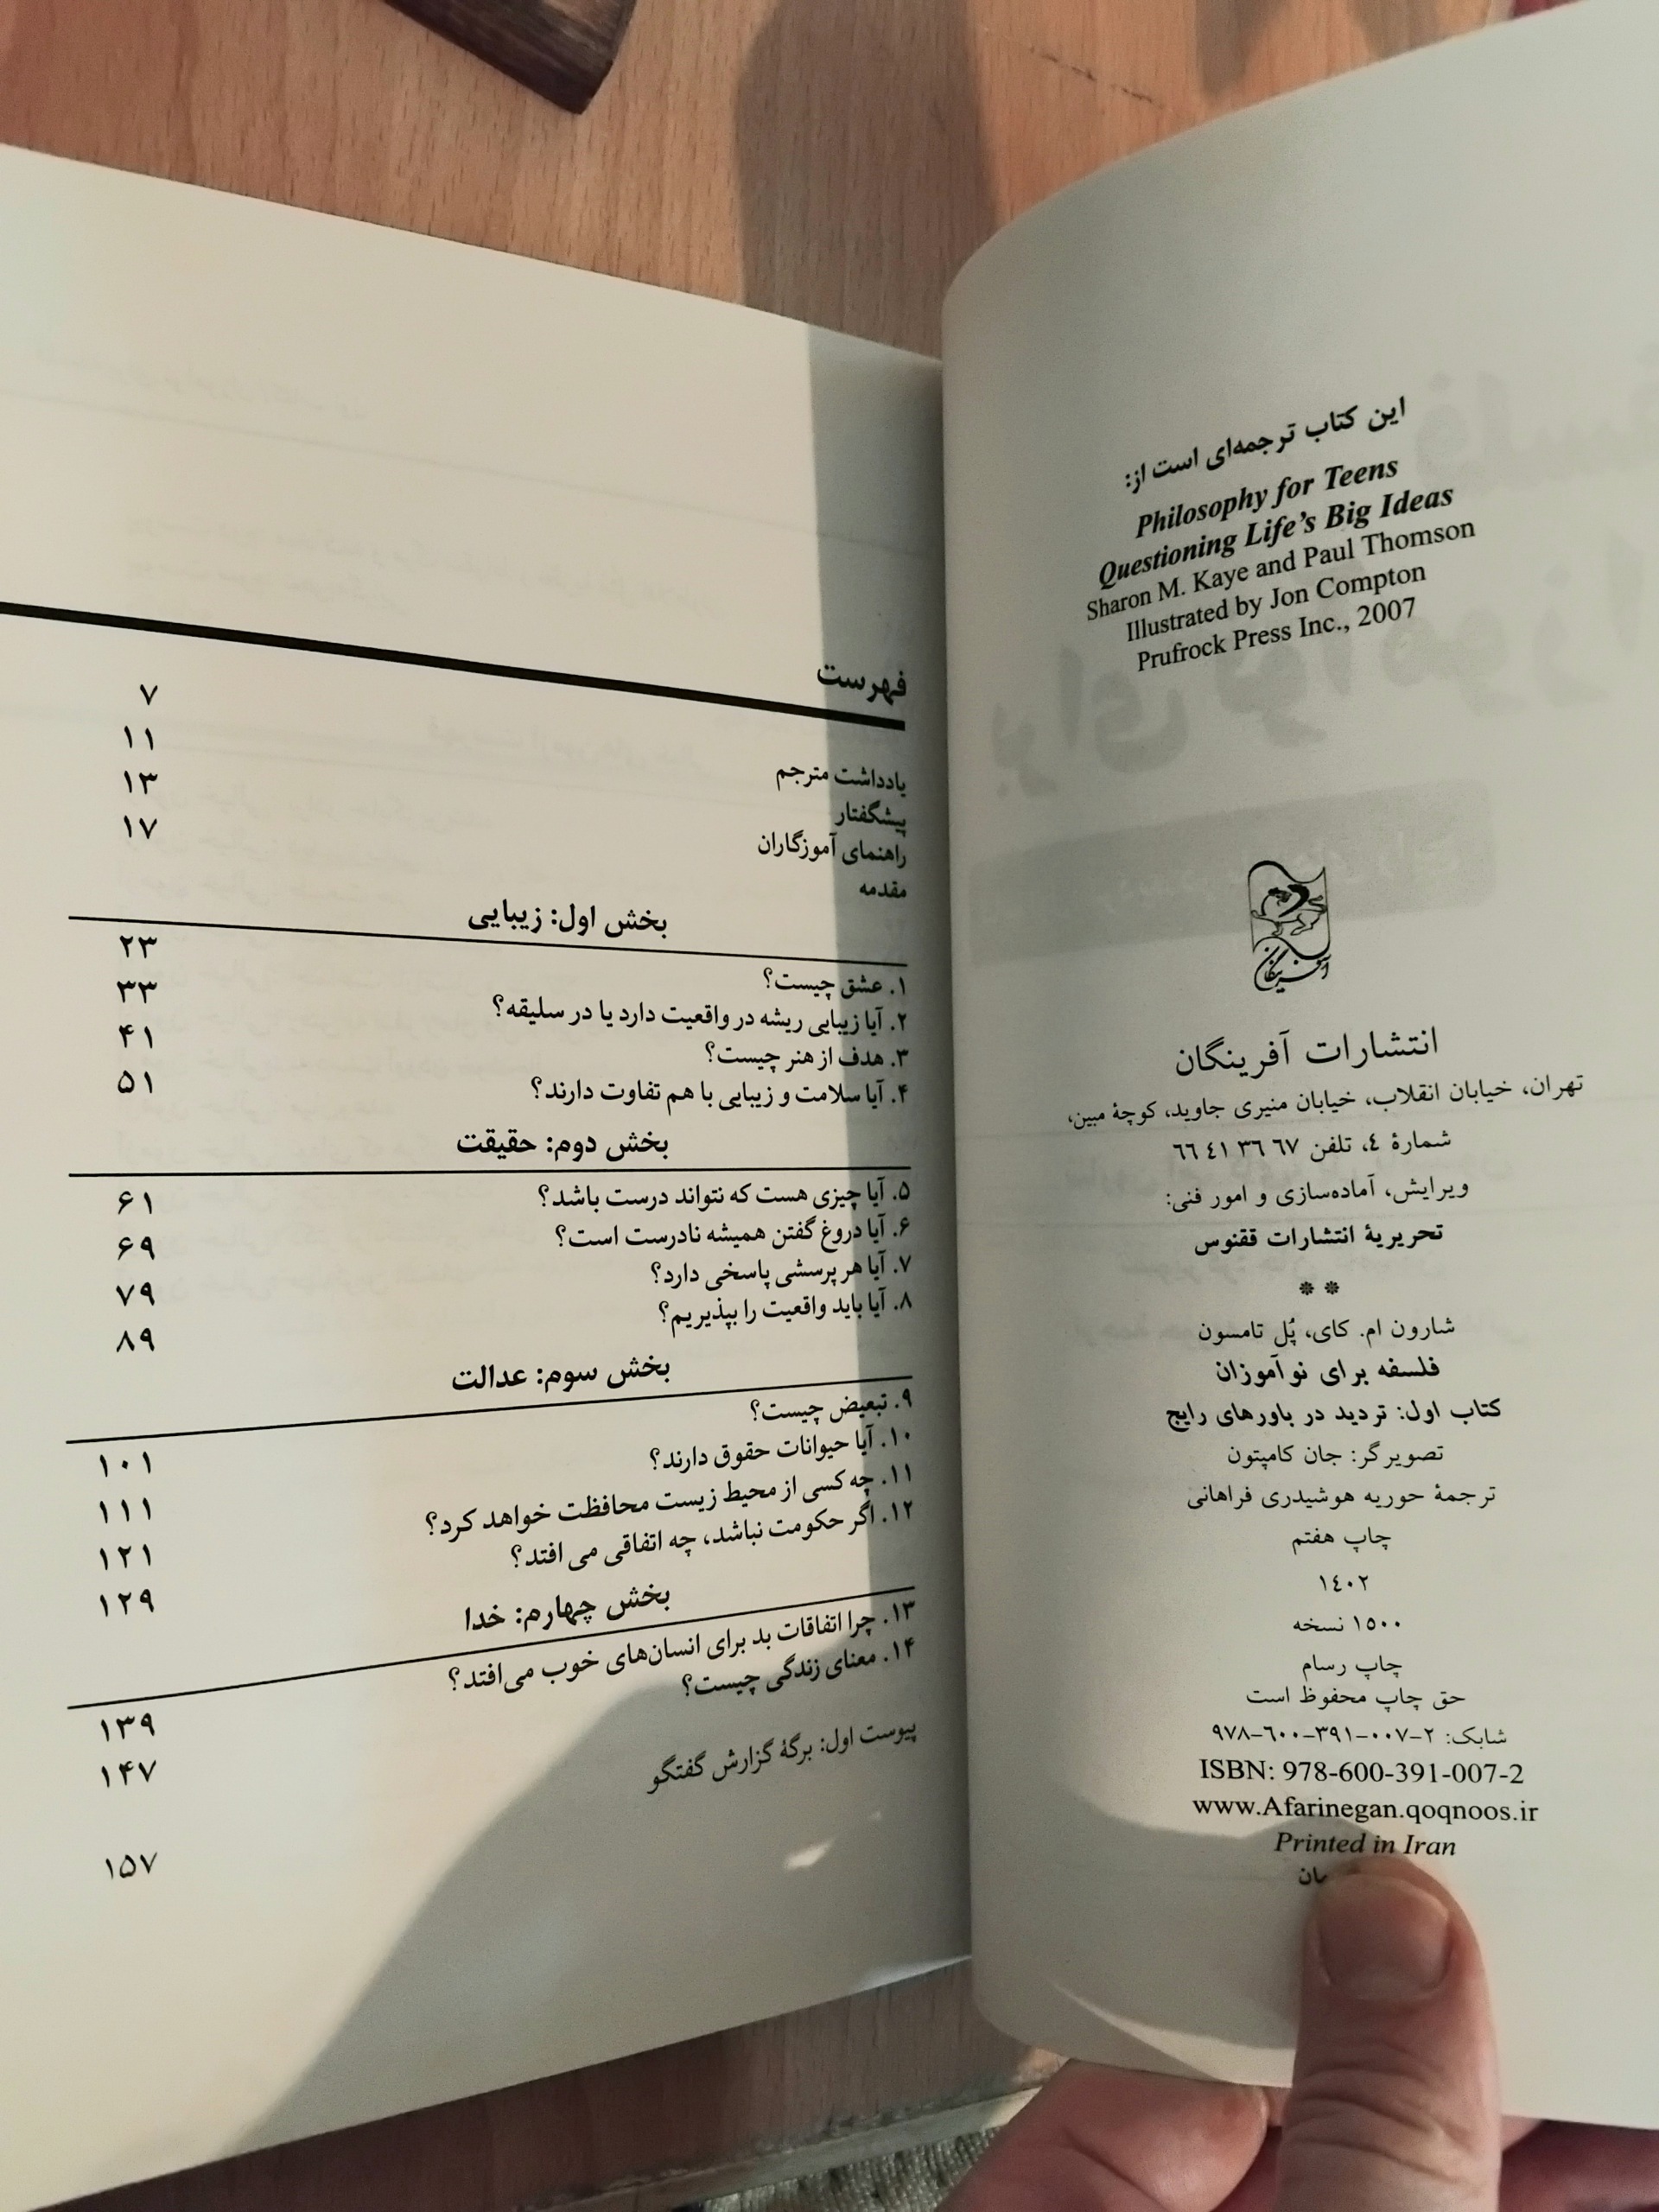 این کتاب ترجمه‌ای است از:
Philosophy for Teens
Questioning Life's Big Ideas
Sharon M. Kaye and Paul Thomson
Illustrated by Jon Compton
Prufrock Press Inc., 2007
آفرینگان
انتشارات آفرینگان
تهران، خیابان انقلاب، خیابان منیری جاوید، کوچهٔ مبین،
شمارهٔ ٤، تلفن ٦٧ ٣٦ ٤١ ٦٦
ویرایش، آماده‌سازی و امور فنی:
تحریریهٔ انتشارات ققنوس
**
شارون ام. کای، پُل تامسون
فلسفه برای نوآموزان
کتاب اول: تردید در باورهای رایج
تصویرگر: جان کامپتون
ترجمهٔ حوریه هوشیدری فراهانی
چاپ هفتم
١٤٠٢
١٥٠٠ نسخه
چاپ رسام
حق چاپ محفوظ است
شابک: ٢-٠٠٧-٣٩١-٦٠٠-٩٧٨
ISBN: 978-600-391-007-2
www.Afarinegan.qoqnoos.ir
Printed in Iran
فهرست
یادداشت مترجم ۷
پیشگفتار ۱۱
راهنمای آموزگاران ۱۳
مقدمه ۱۷
بخش اول: زیبایی
۱. عشق چیست؟ ۲۳
۲. آیا زیبایی ریشه در واقعیت دارد یا در سلیقه؟ ۳۳
۳. هدف از هنر چیست؟ ۴۱
۴. آیا سلامت و زیبایی با هم تفاوت دارند؟ ۵۱
بخش دوم: حقیقت
۵. آیا چیزی هست که نتواند درست باشد؟ ۶۱
۶. آیا دروغ گفتن همیشه نادرست است؟ ۶۹
۷. آیا هر پرسشی پاسخی دارد؟ ۷۹
۸. آیا باید واقعیت را بپذیریم؟ ۸۹
بخش سوم: عدالت
۹. تبعیض چیست؟ ۱۰۱
۱۰. آیا حیوانات حقوق دارند؟ ۱۱۱
۱۱. چه کسی از محیط زیست محافظت خواهد کرد؟ ۱۲۱
۱۲. اگر حکومت نباشد، چه اتفاقی می‌افتد؟ ۱۲۹
بخش چهارم: خدا
۱۳. چرا اتفاقات بد برای انسان‌های خوب می‌افتد؟ ۱۳۹
۱۴. معنای زندگی چیست؟ ۱۴۷
پیوست اول: برگهٔ گزارش گفتگو ۱۵۷